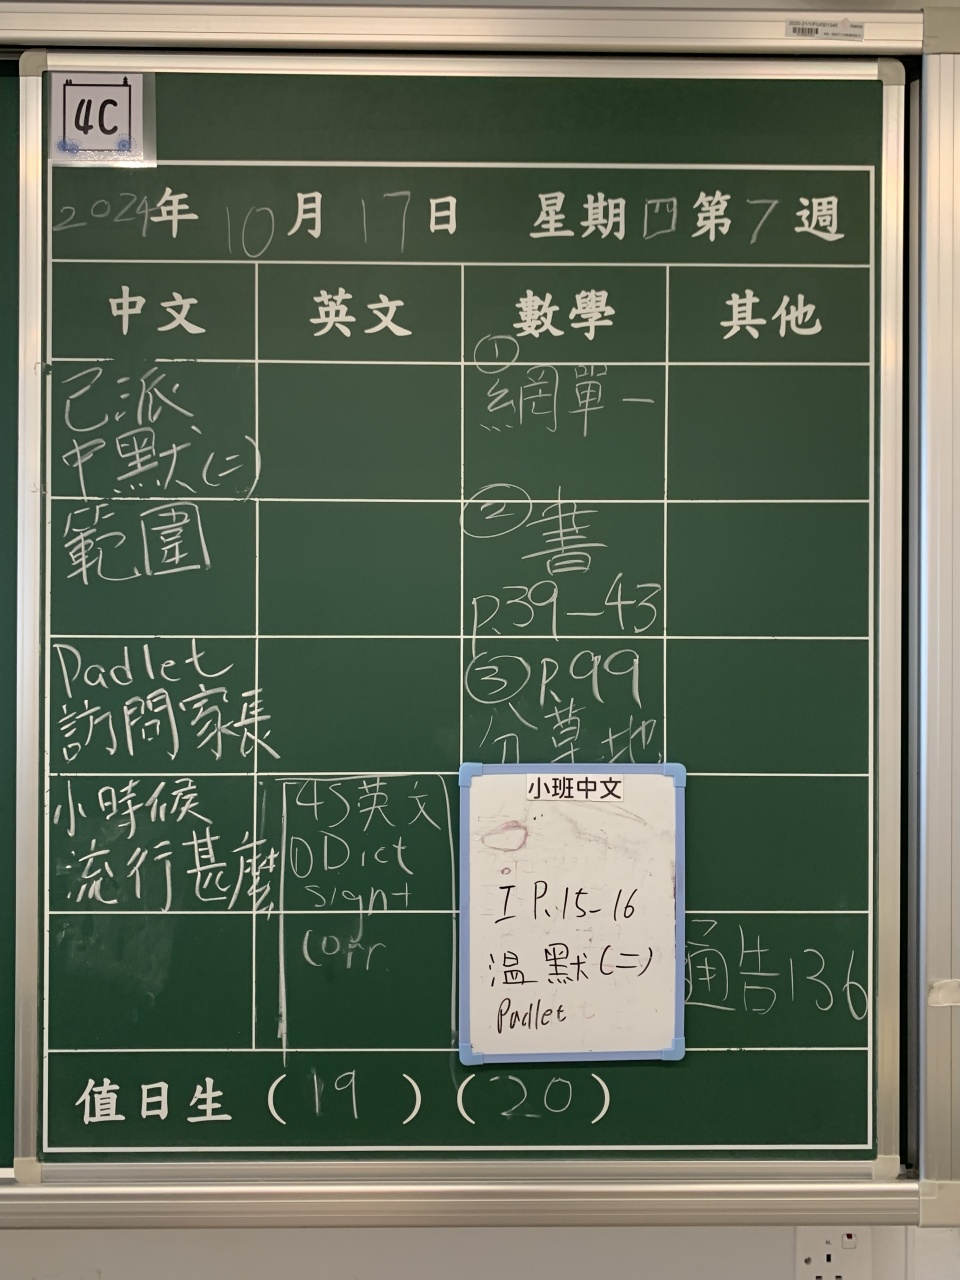 4C
2024年 10月 17日 星期四 第7週
中文 英文 數學 其他
已派
中默(二)
範圍
Padlet
訪問家長
小時候
流行甚麼
4S英文
① Dict
sign+
Corr.
①
網單一
② 書
P.39-43
③ P.99
分草地
小班中文
I P.15-16
溫默(二)
Padlet
通告136
值日生 (19) (20)